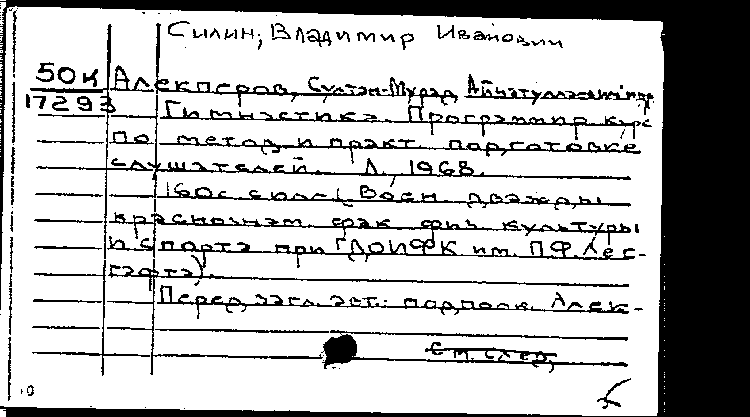 Силин, Владимир Иванович
50к Алекперов, Султан-Мурад
17293 Гимнастика. Программир курс
по метод. и практ. подготовке
слушателей. Л., 1968.
160с с илл. (Воен. дважды
краснознам. фак. физ. культуры
и спорта при ГДОИФК им. П.Ф. Лес-
гафта).
Перед загл. авт.: подполк. Алек-
См. след.